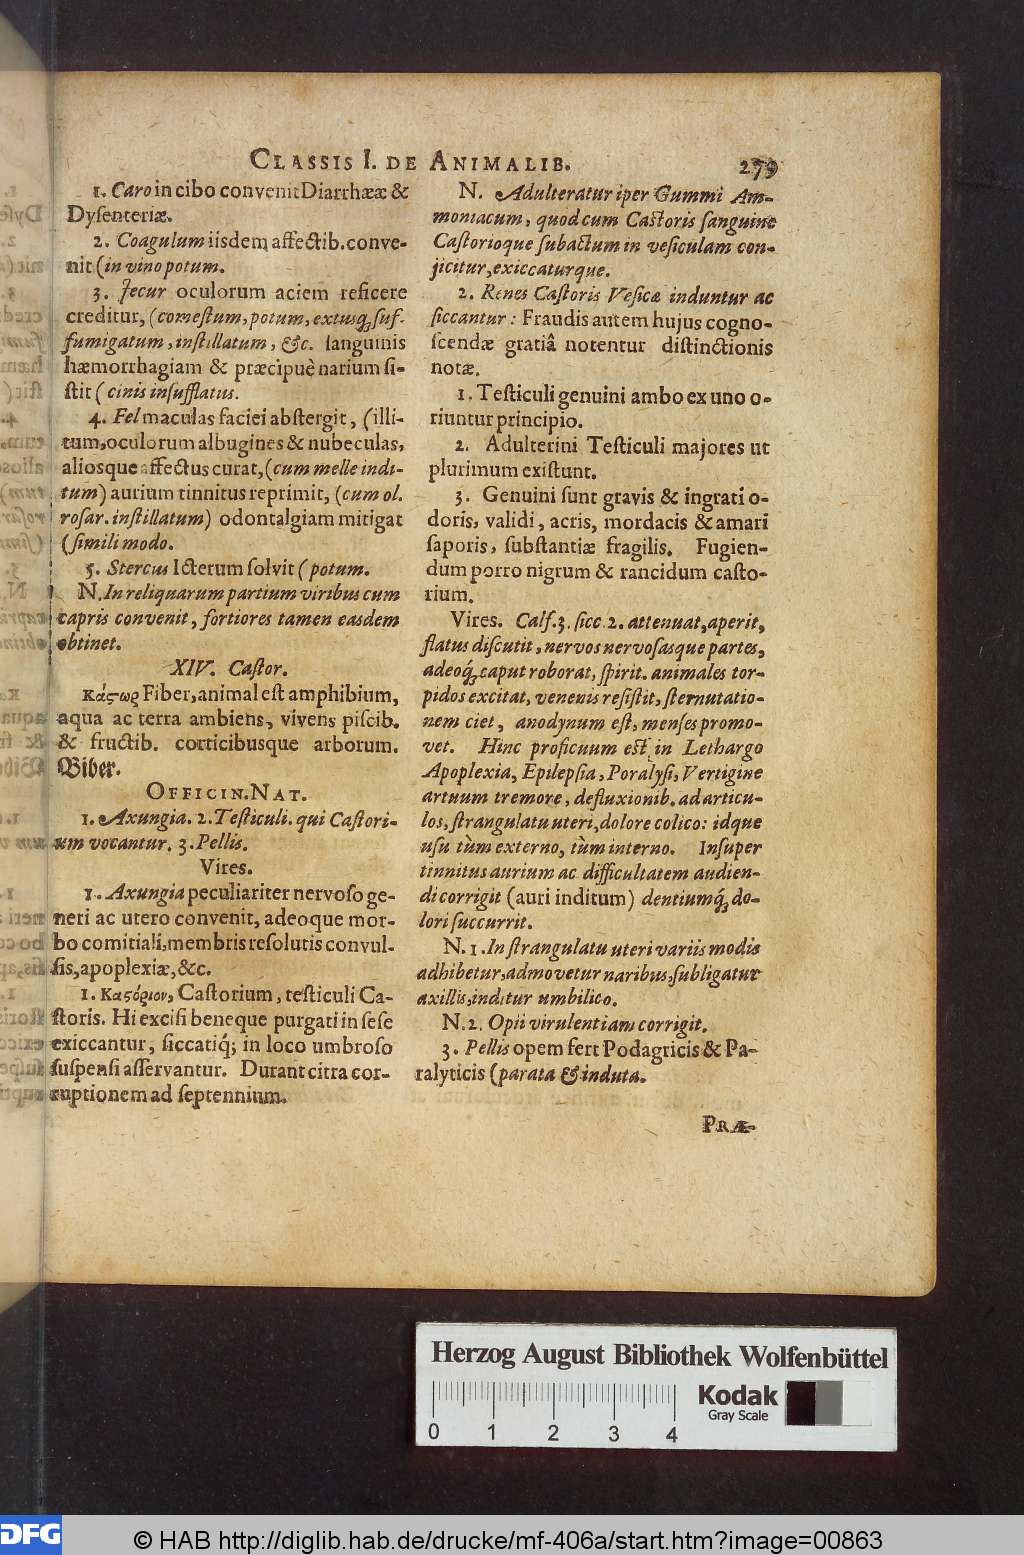 CLASSIS I. DE ANIMALIB. 279
1. Caro in cibo convenit Diarrhææ &
Dyſenteriæ.
2. Coagulum iisdem affectib. conve-
nit (in vino potum.
3. Jecur oculorum aciem reficere
creditur, (comeſtum, potum, extusq́; ſuf-
fumigatum, inſtillatum, &c. ſanguinis
hæmorrhagiam & præcipuè narium ſi-
ſtit (cinis inſufflatus.
4. Fel maculas faciei abſtergit, (illi-
tum, oculorum albugines & nubeculas,
aliosque affectus curat, (cum melle indi-
tum) aurium tinnitus reprimit, (cum ol.
roſar. inſtillatum) odontalgiam mitigat
(ſimili modo.
5. Stercus Icterum ſolvit (potum.
N. In reliquarum partium viribus cum
capris convenit, fortiores tamen easdem
obtinet.
XIV. Caſtor.
Κάϛωρ Fiber, animal eſt amphibium,
aqua ac terra ambiens, vivens piſcib.
& fructib. corticibusque arborum.
Biber.
OFFICIN. NAT.
1. Axungia. 2. Teſticuli. qui Caſtori-
um vocantur. 3. Pellis.
Vires.
1. Axungia peculiariter nervoſo ge-
neri ac utero convenit, adeoque mor-
bo comitiali, membris reſolutis convul-
ſis, apoplexiæ, &c.
1. Καϛόριον, Caſtorium, teſticuli Ca-
ſtoris. Hi exciſi beneque purgati in ſeſe
exiccantur, ſiccatiq́; in loco umbroſo
ſuſpenſi aſſervantur. Durant citra cor-
ruptionem ad ſeptennium.
N. Adulteratur iper Gummi Am-
moniacum, quod cum Caſtoris ſanguine
Caſtorioque ſubactum in veſiculam con-
jicitur, exiccaturque.
2. Renes Caſtoris Veſicæ induntur ac
ſiccantur: Fraudis autem hujus cogno-
ſcendæ gratiâ notentur diſtinctionis
notæ.
1. Teſticuli genuini ambo ex uno o-
riuntur principio.
2. Adulterini Teſticuli majores ut
plurimum exiſtunt.
3. Genuini ſunt gravis & ingrati o-
doris, validi, acris, mordacis & amari
ſaporis, ſubſtantiæ fragilis. Fugien-
dum porro nigrum & rancidum caſto-
rium.
Vires. Calf. 3. ſicc. 2. attenuat, aperit,
flatus diſcutit, nervos nervoſasque partes,
adeoq́; caput roborat, ſpirit. animales tor-
pidos excitat, venenis reſiſtit, ſternutatio-
nem ciet, anodynum eſt, menſes promo-
vet. Hinc proficuum eſt in Lethargo
Apoplexia, Epilepſia, Poralyſi, Vertigine
artuum tremore, defluxionib. ad articu-
los, ſtrangulatu uteri, dolore colico: idque
uſu tùm externo, tùm interno. Inſuper
tinnitus aurium ac difficultatem audien-
di corrigit (auri inditum) dentiumq́; do-
lori ſuccurrit.
N. 1. In ſtrangulatu uteri variis modis
adhibetur, admovetur naribus, ſubligatur
axillis, inditur umbilico.
N. 2. Opii virulentiam corrigit.
3. Pellis opem fert Podagricis & Pa-
ralyticis (parata & induta.
PRÆ-
Herzog August Bibliothek Wolfenbüttel
0 1 2 3 4
Kodak
Gray Scale
DFG
© HAB http://diglib.hab.de/drucke/mf-406a/start.htm?image=00863